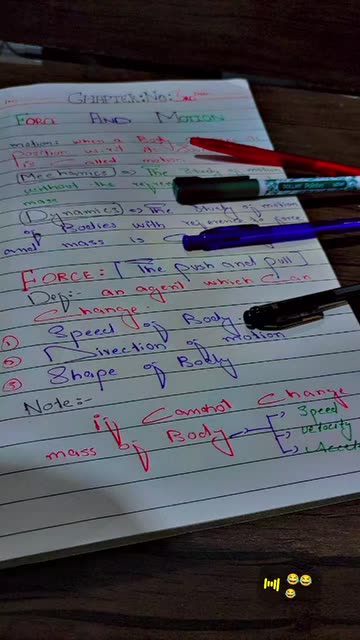 CHAPTER:No:
FORCE AND MOTION
motions when a Body
Position
is called motion
Mechanics => The Study of motion
without the
mass
Dynamics => The Study of motion
of Bodies with force
and mass is
FORCE: [The push and pull]
Def:- an agent which can
Change.
① Speed of Body
② Direction of motion
③ Shape of Body
Note:-
if Cannot Change
mass of Body Speed
velocity